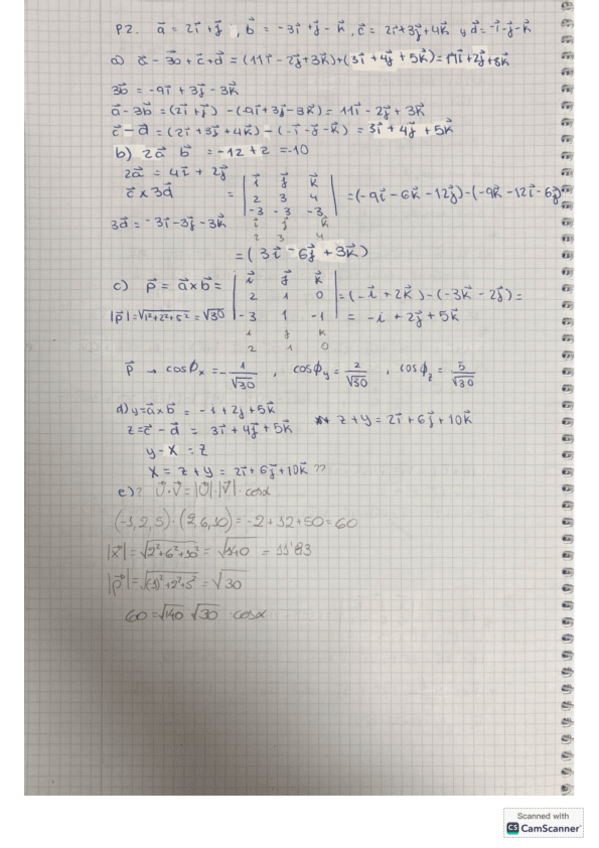 P2. a⃗ = 2i⃗ + j⃗, b⃗ = -3i⃗ + j⃗ - k⃗, c⃗ = 2i⃗ + 3j⃗ + 4k⃗ y d⃗ = -i⃗ - j⃗ - k⃗
a) a⃗ - 3b⃗ + c⃗ + d⃗ = (11i⃗ - 2j⃗ + 3k⃗) + (3i⃗ + 4j⃗ + 5k⃗) = 14i⃗ + 2j⃗ + 8k⃗
3b⃗ = -9i⃗ + 3j⃗ - 3k⃗
a⃗ - 3b⃗ = (2i⃗ + j⃗) - (-9i⃗ + 3j⃗ - 3k⃗) = 11i⃗ - 2j⃗ + 3k⃗
c⃗ - d⃗ = (2i⃗ + 3j⃗ + 4k⃗) - (-i⃗ - j⃗ - k⃗) = 3i⃗ + 4j⃗ + 5k⃗
b) 2a⃗ b⃗ = -12 + 2 = -10
2a⃗ = 4i⃗ + 2j⃗
c⃗ x 3d⃗ = | i⃗ j⃗ k⃗ | = (-9i⃗ - 6k⃗ - 12j⃗) - (-9k⃗ - 12i⃗ - 6j⃗)
2 3 4
-3 -3 -3
3d⃗ = -3i⃗ - 3j⃗ - 3k⃗ i⃗ j⃗ k⃗
2 3 4
= (3i⃗ - 6j⃗ + 3k⃗)
c) p⃗ = a⃗ x b⃗ = | i⃗ j⃗ k⃗ |
2 1 0 = (-i⃗ + 2k⃗) - (-3k⃗ - 2j⃗) =
|p⃗| = √1²+2²+5² = √30 -3 1 -1 = -i + 2j⃗ + 5k⃗
i j k
2 1 0
p⃗ → cos ϕx = -1/√30, cos ϕy = 2/√30, cos ϕz = 5/√30
d) y = a⃗ x b⃗ = -i + 2j + 5k⃗
z = c⃗ - d⃗ = 3i⃗ + 4j⃗ + 5k⃗ z + y = 2i⃗ + 6j⃗ + 10k⃗
y - x = z
x = z + y = 2i⃗ + 6j⃗ + 10k⃗ ??
e)? U⃗·V⃗ = |U⃗|·|V⃗|· cosα
(-1, 2, 5)·(2, 6, 10) = -2 + 12 + 50 = 60
|x⃗| = √2²+6²+10² = √140 = 11'83
|p⃗| = √(-1)²+2²+5² = √30
60 = √140 √30 · cosα
Scanned with
CS CamScanner